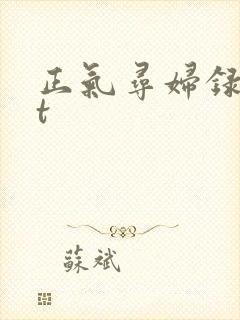 正氣尋婦録
t
蘇斌